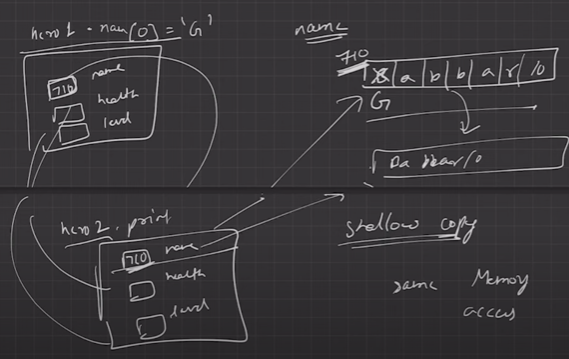 hero1 . name[0] = 'G'
name
710 name
health
level
710
B a b b a r \0
G
Babbar \0
hero2 . print
710 name
health
level
shallow copy
same Memory
access